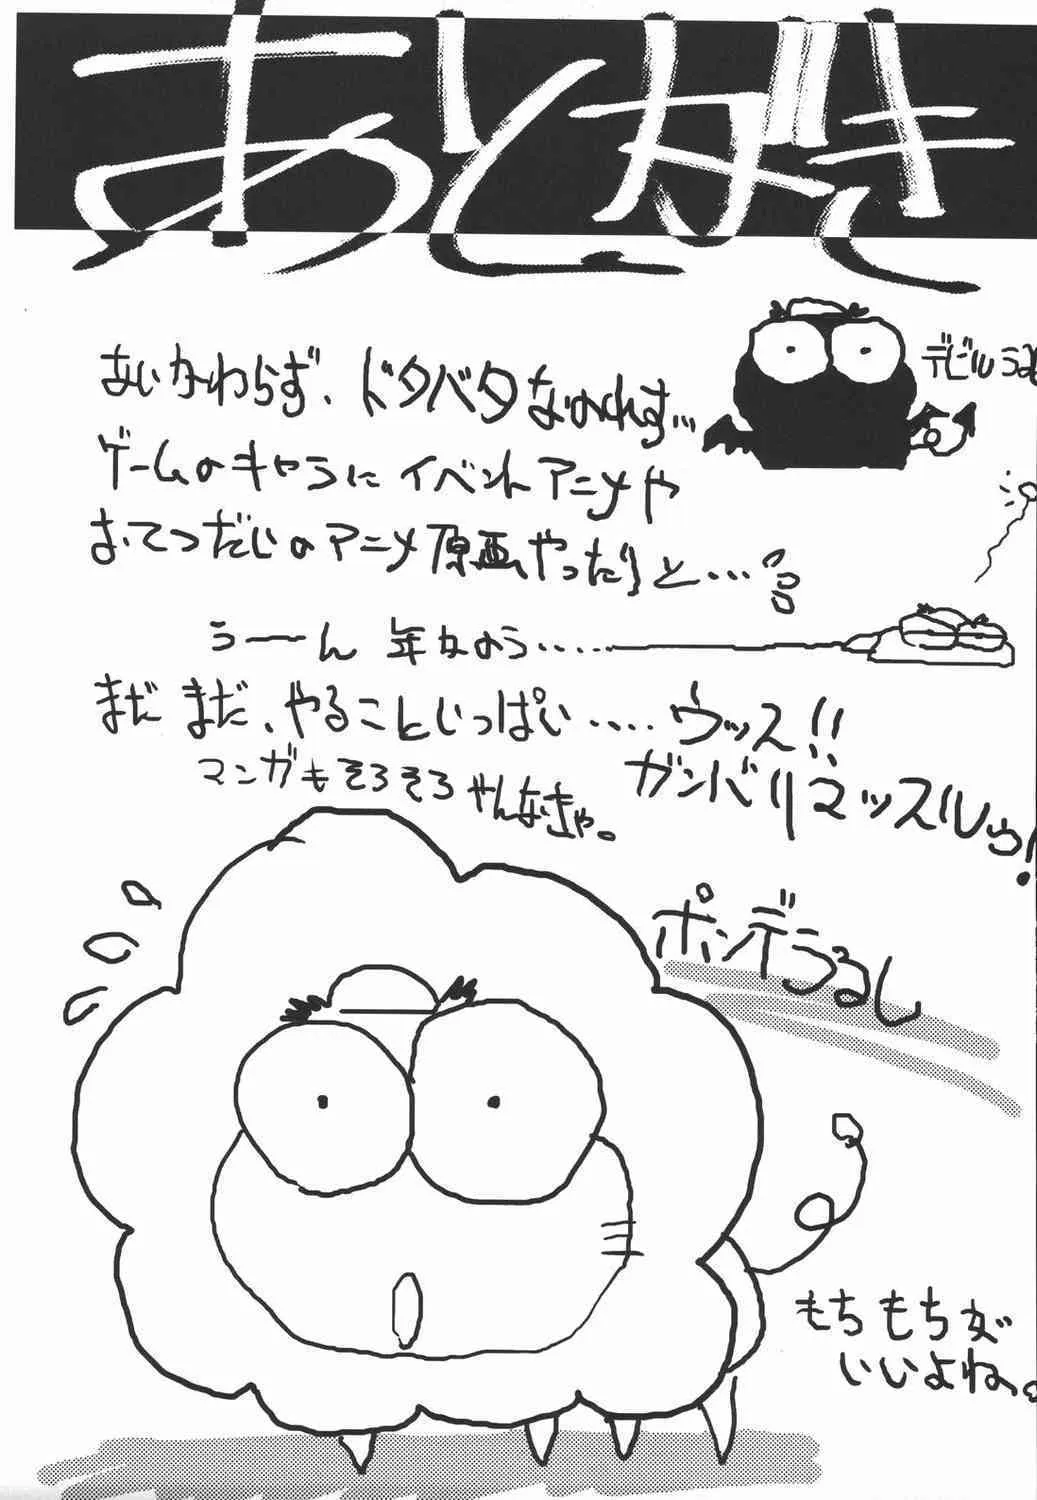 あとがき
あいかわらず、ドタバタなのれす…
デビルうる
ゲームのキャラにイベントアニメや
おてつだいのアニメ原画やったりと…
うーん 年なのう……
まだまだ、やることいっぱい…… ウッス!!
マンガもそろそろやんなきゃ。
ガンバリマッスルゥ!
ポンデうるし
もちもちが
いいよね。